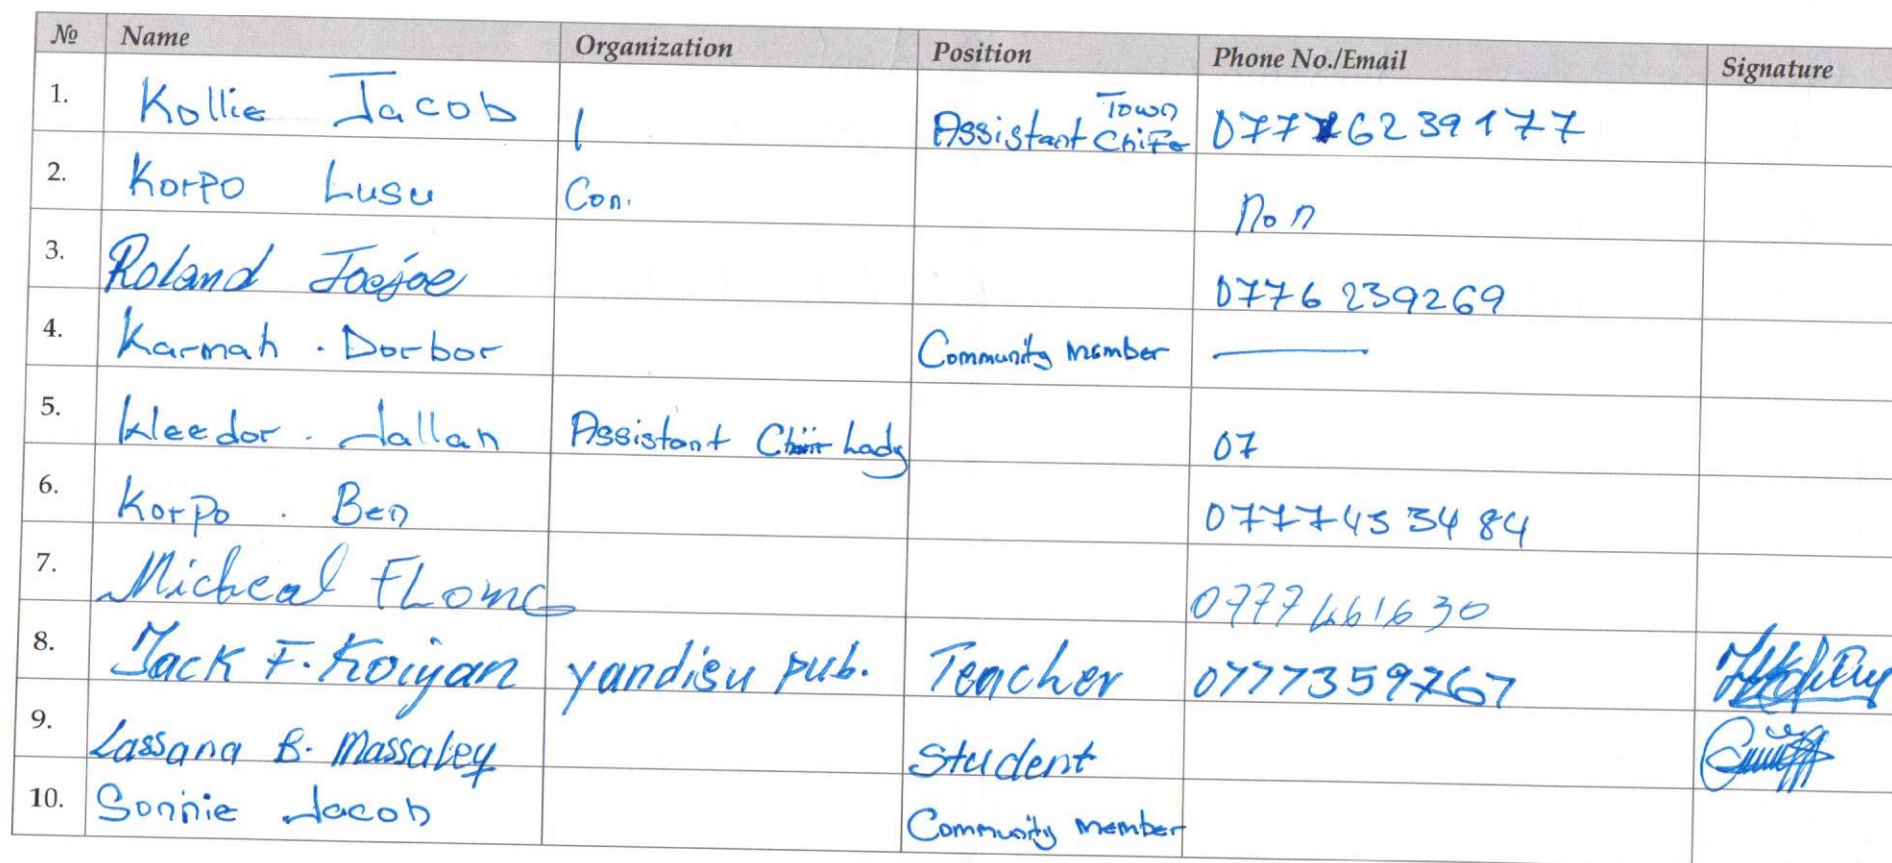 № Name Organization Position Phone No./Email Signature
1. Kollie Jacob Assistant Town Chife 077 6239177
2. Korpo Lusu Con. Non
3. Roland Joejoe 0776 239269
4. Karmah . Dorbor Community member
5. Kleedor . Jallah Assistant Chair Lady 07
6. Korpo . Ben 0777453484
7. Micheal FLomo 0777461630
8. Jack F. Koiyan yandisu pub. Teacher 0777359767
9. Lassana B. Massaley Student
10. Sonnie Jacob Community member